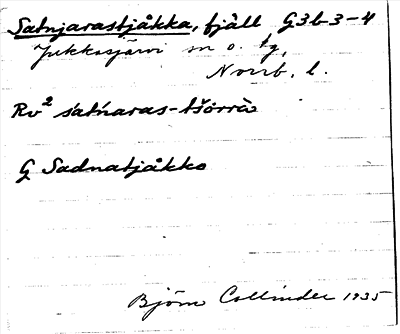 Satnjarastjåkka, fjäll G3b3-4
Jukkasjärvi sn o. tg,
Norrb. l.
Rv² sat́naras-tšɔrrà
G Sadnatjåkko
Björn Collinder 1935